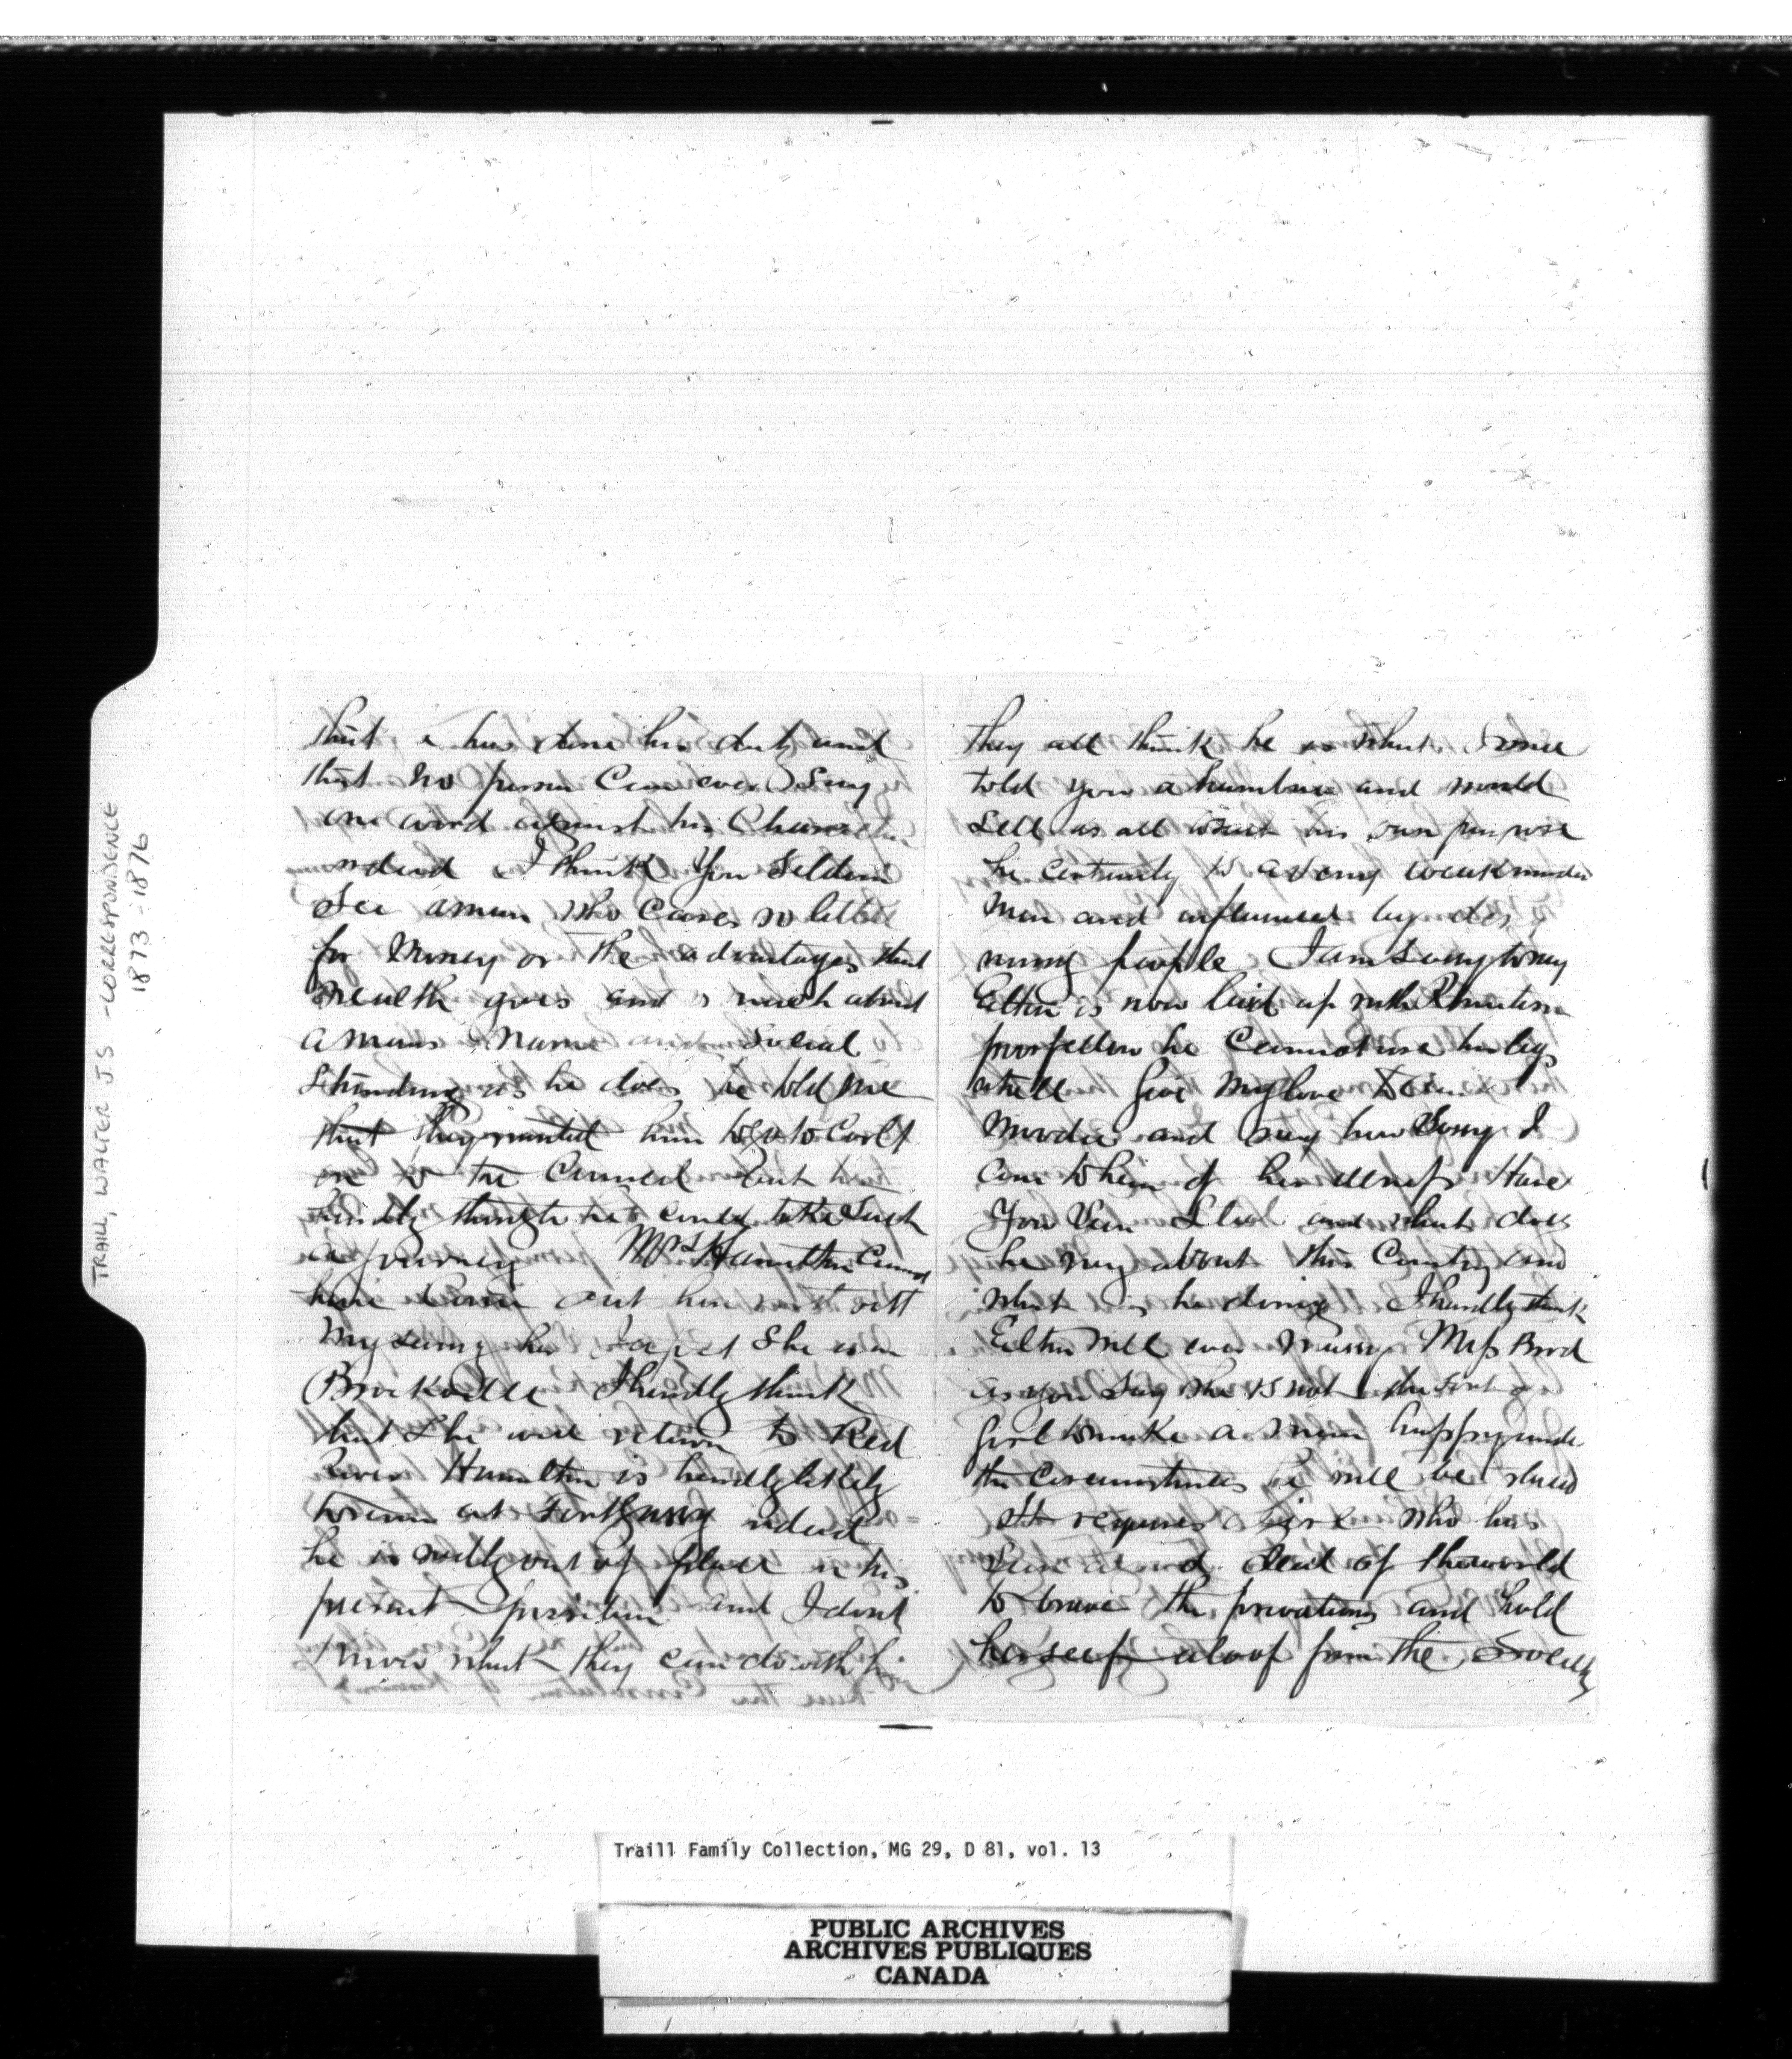 TRAILL, WALTER J.S. - CORRESPONDENCE
1873-1876
that he has done his duty and
that no person Can ever say
one word against his Character
indeed I think You Seldom
See a man who Cares so little
for Money or the advantages that
Wealth gives and so much about
a mans Name and Social
Standing as he does he told me
that they wanted him to go to
on to the Council but
hardly thought he could take Such
a journey Mrs Hamilton Cannot
have Come out here
as yet She is in
Brockville I hardly think
that She will return to Red
River Hamilton is hardly likely
to remain at Fort Garry indeed
he is really out of place in his
present position and I dont
know what they can do with him
they all think he is what I once
told you a humbug and would
Sell us all to suit his own purpose
he certainly is a very weak minded
Man and influenced by
people I am Sorry to say
Elton is now laid up with Rhumatism
poor fellow he Cannot use his legs
at all Give My love to
and say how Sorry I
am to hear of her illness Have
You Seen and what does
he say about this Country and
what is he doing I hardly think
Elton will ever marry Miss
as you say She is not the sort of
girl to make a man happy under
the circumstances he will be
It requires a girl who has
Seen a good deal of the world
to brave the privations and hold
herself aloof from the Society
Traill Family Collection, MG 29, D 81, vol. 13
PUBLIC ARCHIVES
ARCHIVES PUBLIQUES
CANADA